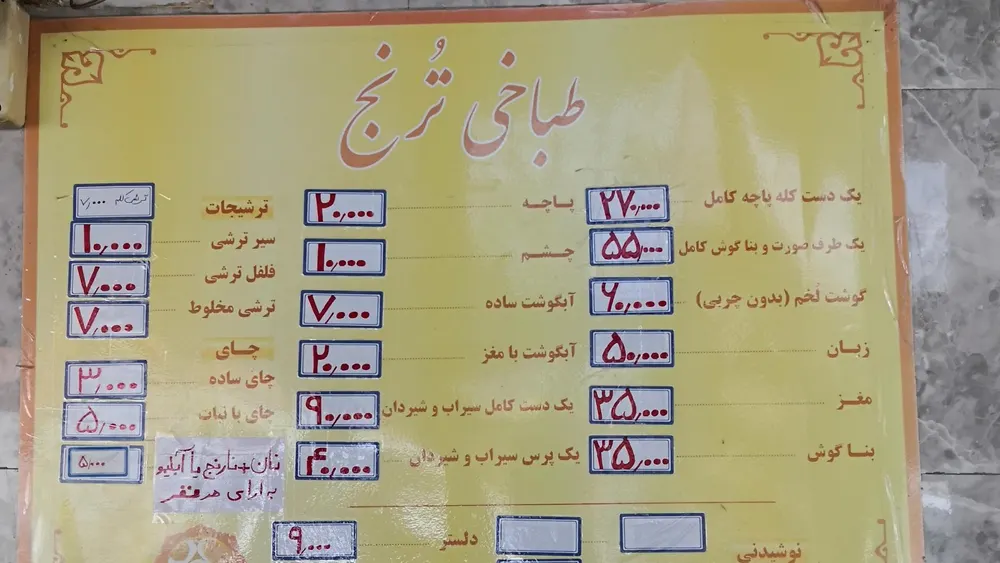 طباخی تُرنج
یک دست کله پاچه کامل ۲۷۰,۰۰۰
یک طرف صورت و بنا گوش کامل ۵۵,۰۰۰
گوشت لُخم (بدون چربی) ۶۰,۰۰۰
زبان ۵۰,۰۰۰
مغز ۳۵,۰۰۰
بنا گوش ۳۵,۰۰۰
پاچه ۲۰,۰۰۰
چشم ۱۰,۰۰۰
آبگوشت ساده ۷,۰۰۰
آبگوشت با مغز ۲۰,۰۰۰
یک دست کامل سیراب و شیردان ۹۰,۰۰۰
یک پرس سیراب و شیردان ۴۰,۰۰۰
ترشیجات
۷,۰۰۰
سیر ترشی ۱۰,۰۰۰
فلفل ترشی ۷,۰۰۰
ترشی مخلوط ۷,۰۰۰
چای
چای ساده ۳,۰۰۰
چای با نبات ۵,۰۰۰
نان+نارنج یا آبلیمو
به ازای هر نفر
۵,۰۰۰
نوشیدنی
دلستر ۹,۰۰۰